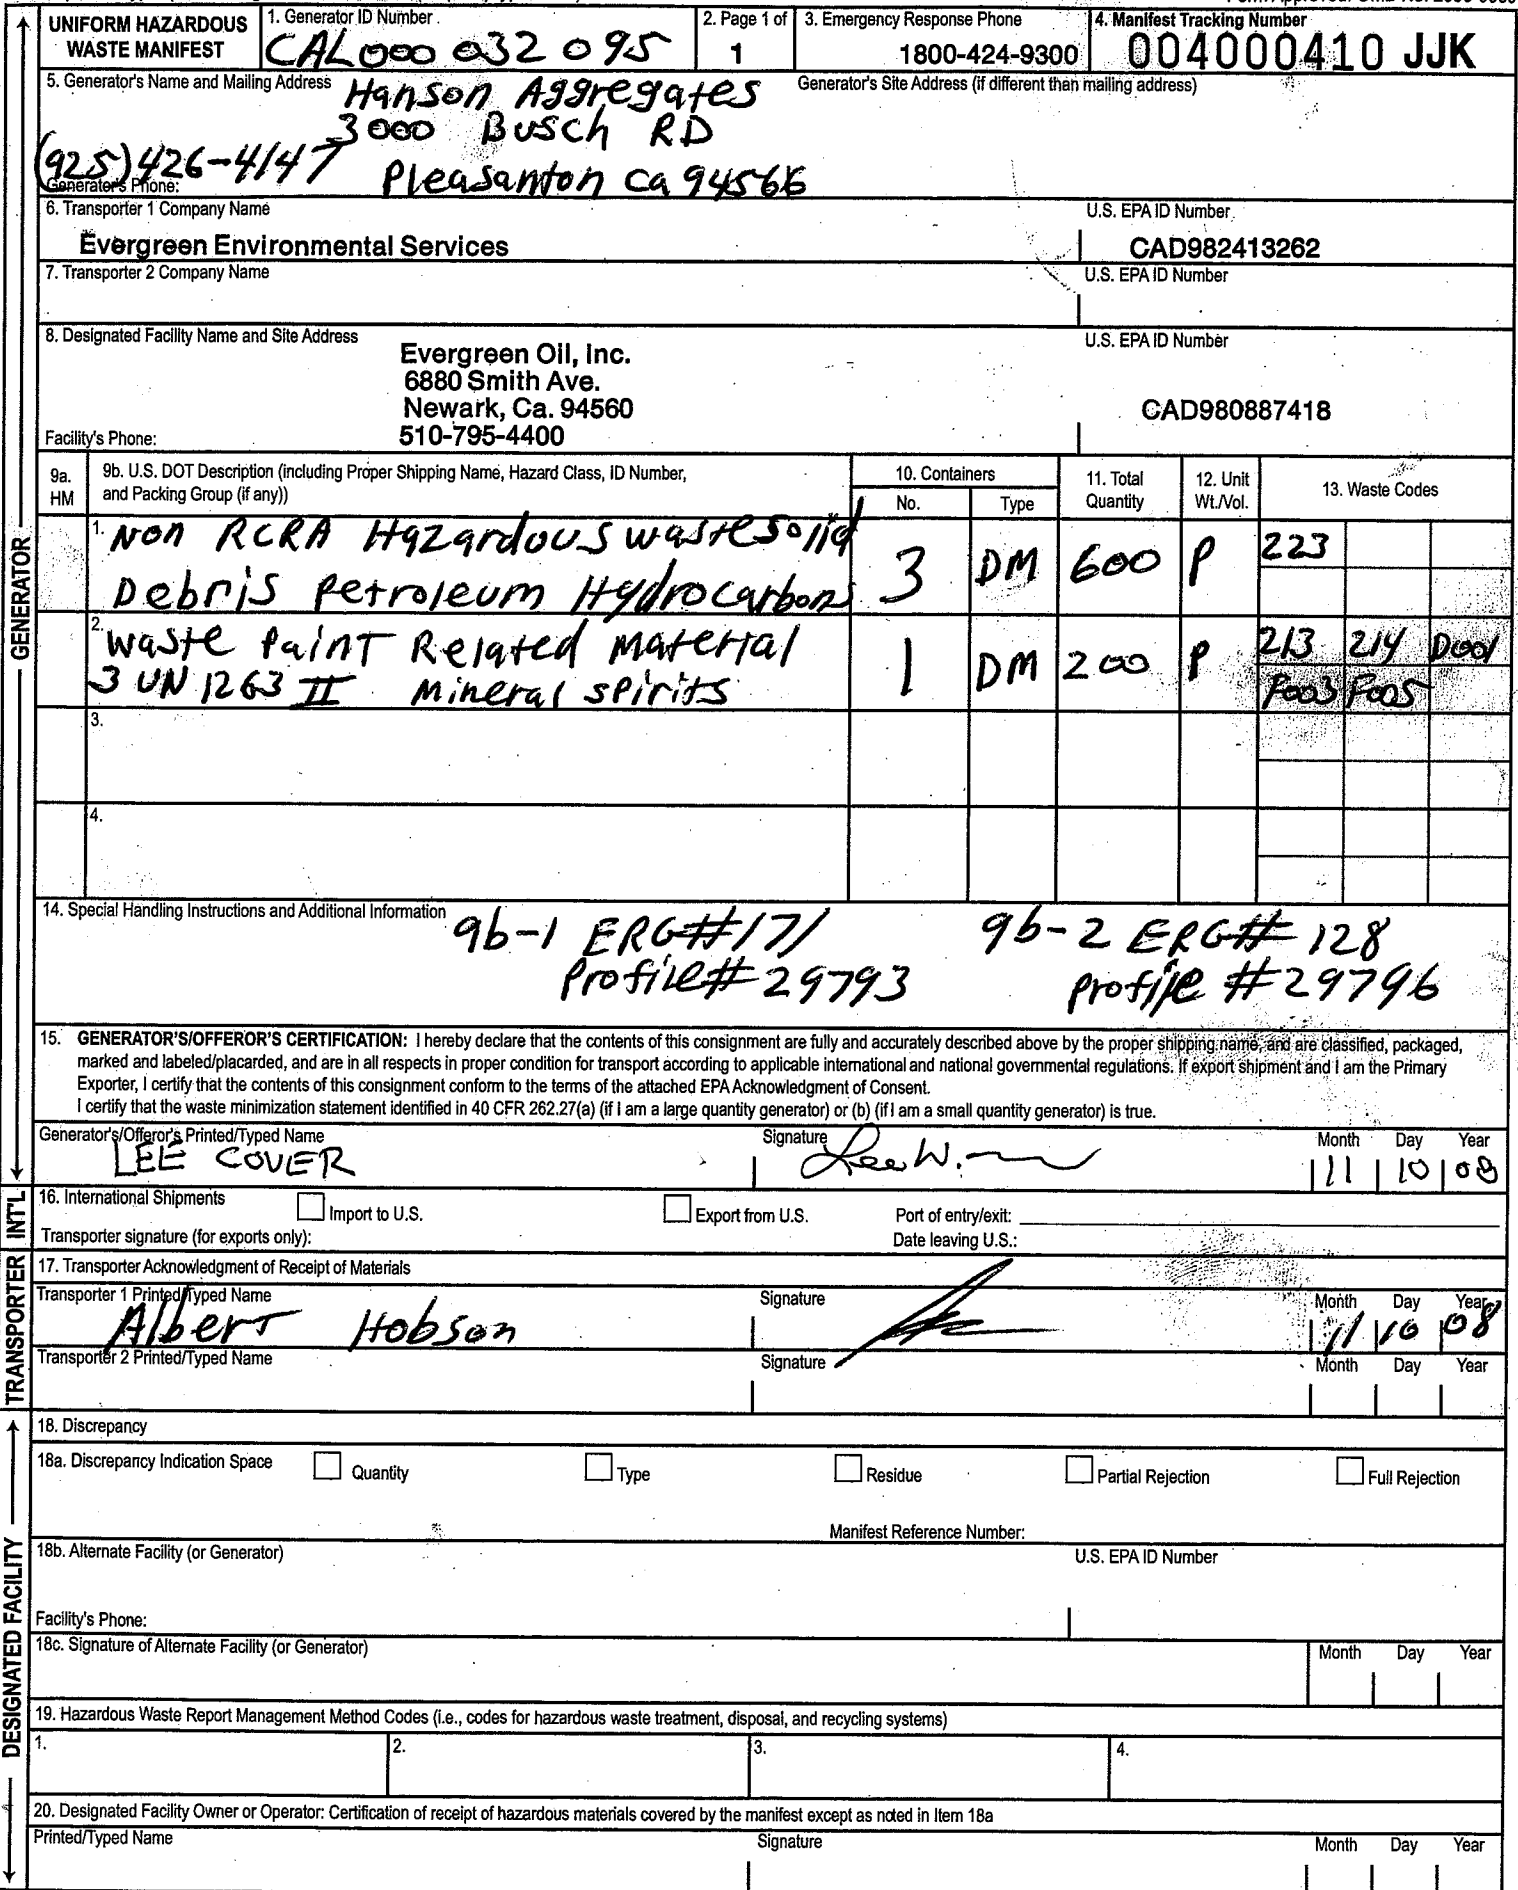 UNIFORM HAZARDOUS WASTE MANIFEST
1. Generator ID Number
CAL000 032 095
2. Page 1 of
1
3. Emergency Response Phone
1800-424-9300
4. Manifest Tracking Number
004000410 JJK
5. Generator's Name and Mailing Address
Hanson Aggregates
3000 Busch RD
Pleasanton Ca 94566
Generator's Site Address (if different than mailing address)
(925) 426-4147
Generator's Phone:
6. Transporter 1 Company Name
Evergreen Environmental Services
U.S. EPA ID Number
CAD982413262
7. Transporter 2 Company Name
U.S. EPA ID Number
8. Designated Facility Name and Site Address
Evergreen Oil, Inc.
6880 Smith Ave.
Newark, Ca. 94560
510-795-4400
Facility's Phone:
U.S. EPA ID Number
CAD980887418
GENERATOR
9a. HM
9b. U.S. DOT Description (including Proper Shipping Name, Hazard Class, ID Number,
and Packing Group (if any))
10. Containers
No.
Type
11. Total Quantity
12. Unit Wt./Vol.
13. Waste Codes
1. Non RCRA Hazardous waste solid
Debris Petroleum Hydrocarbons
3 DM 600 P 223
2. Waste Paint Related Material
3 UN 1263 II Mineral spirits
1 DM 200 P 213 214 D001
F003 F005
3.
4.
14. Special Handling Instructions and Additional Information
9b-1 ERG# 171 9b-2 ERG# 128
Profile# 29793 Profile # 29796
15. GENERATOR'S/OFFEROR'S CERTIFICATION: I hereby declare that the contents of this consignment are fully and accurately described above by the proper shipping name, and are classified, packaged,
marked and labeled/placarded, and are in all respects in proper condition for transport according to applicable international and national governmental regulations. If export shipment and I am the Primary
Exporter, I certify that the contents of this consignment conform to the terms of the attached EPA Acknowledgment of Consent.
I certify that the waste minimization statement identified in 40 CFR 262.27(a) (if I am a large quantity generator) or (b) (if I am a small quantity generator) is true.
Generator's/Offeror's Printed/Typed Name
LEE COVER
Signature
Lee W.
Month Day Year
11 10 08
INT'L
16. International Shipments
Import to U.S.
Export from U.S.
Port of entry/exit:
Transporter signature (for exports only):
Date leaving U.S.:
TRANSPORTER
17. Transporter Acknowledgment of Receipt of Materials
Transporter 1 Printed/Typed Name
Albert Hobson
Signature
Month Day Year
11 10 08
Transporter 2 Printed/Typed Name
Signature
Month Day Year
DESIGNATED FACILITY
18. Discrepancy
18a. Discrepancy Indication Space
Quantity
Type
Residue
Partial Rejection
Full Rejection
Manifest Reference Number:
18b. Alternate Facility (or Generator)
U.S. EPA ID Number
Facility's Phone:
18c. Signature of Alternate Facility (or Generator)
Month Day Year
19. Hazardous Waste Report Management Method Codes (i.e., codes for hazardous waste treatment, disposal, and recycling systems)
1. 2. 3. 4.
20. Designated Facility Owner or Operator: Certification of receipt of hazardous materials covered by the manifest except as noted in Item 18a
Printed/Typed Name
Signature
Month Day Year